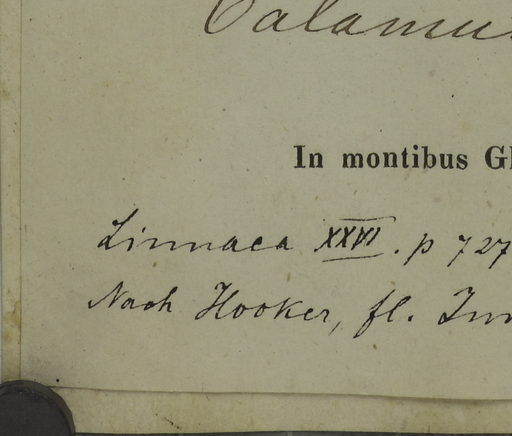 Calamu
In montibus Gh
Linnaea XXVI. p 727
Nach Hooker, fl.